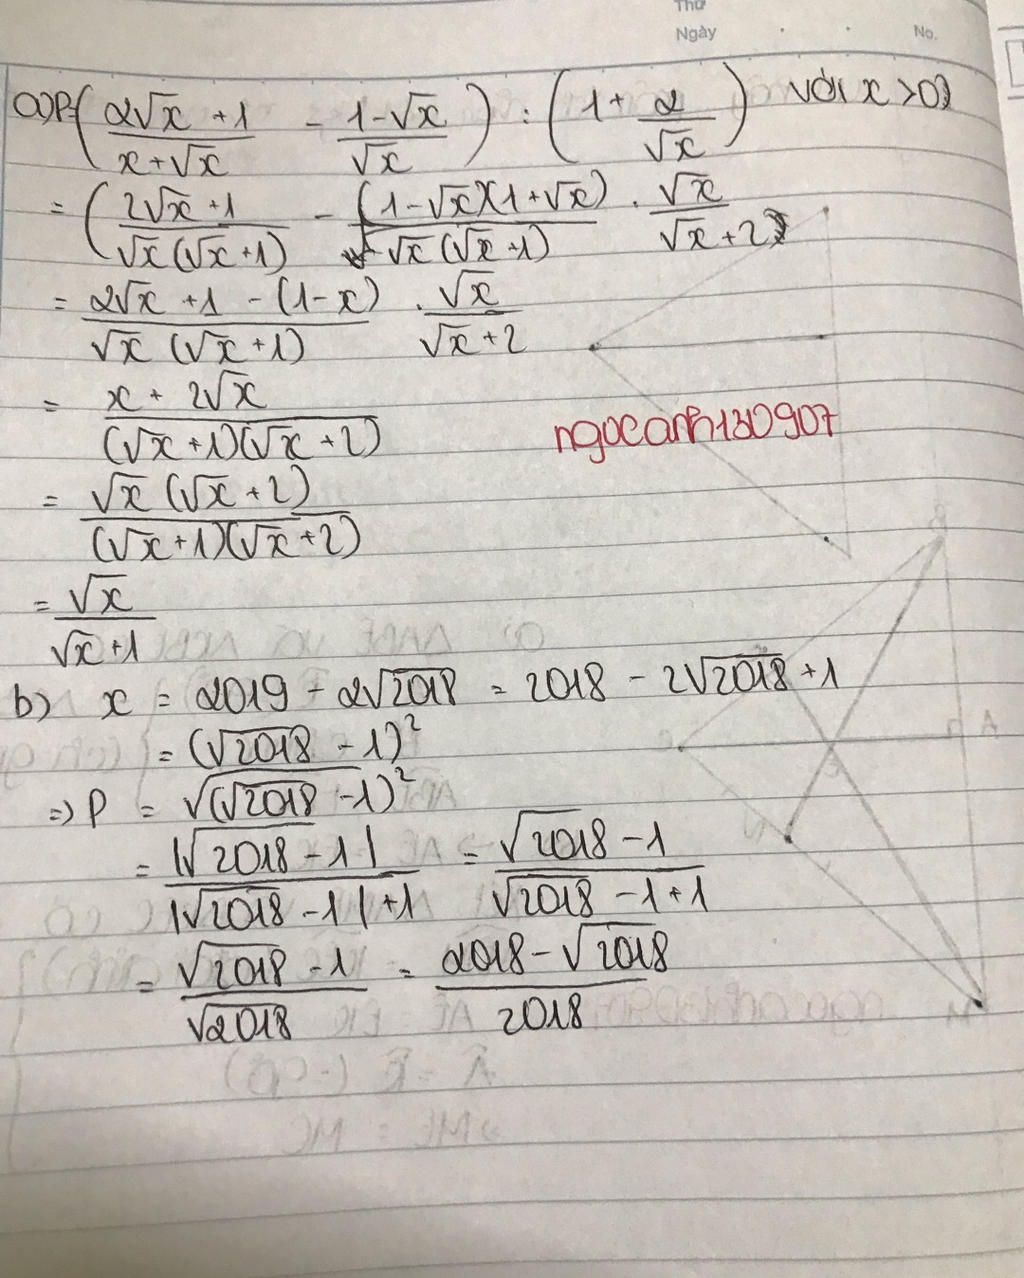 Thứ
Ngày No.
a)P=((2√x + 1)/(x + √x) - (1 - √x)/√x) : (1 + 2/√x) với x > 0)
= ((2√x + 1)/(√x (√x + 1)) - (1 - √x)(1 + √x)/(√x (√x + 1)) . √x/(√x + 2)
= (2√x + 1 - (1 - x))/(√x (√x + 1)) . √x/(√x + 2)
= (x + 2√x)/((√x + 1)(√x + 2))
ngocanh130907
= √x (√x + 2)/((√x + 1)(√x + 2))
= √x/(√x + 1)
b) x = 2019 - 2√2018 = 2018 - 2√2018 + 1
= (√2018 - 1)²
=> P = √(√2018 - 1)²
= |√2018 - 1|/(|√2018 - 1| + 1) = (√2018 - 1)/(√2018 - 1 + 1)
= (√2018 - 1)/√2018 = (2018 - √2018)/2018